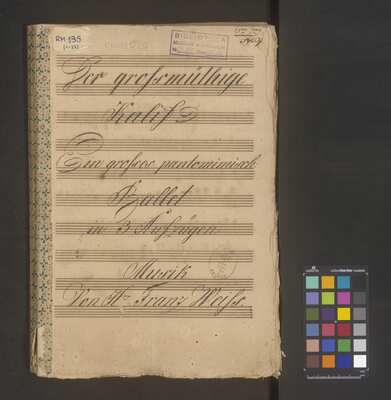 RM 135
BIBLIOTEKA
Der grossmüthige
Kalif
Ein grosses pantomimisch
Ballet
in 3 Aufzügen
Musik
Von Hr. Franz Weiss.